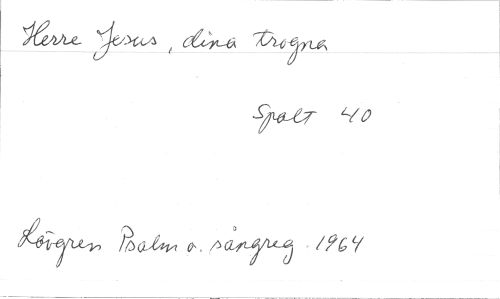 Herre Jesus, dina trogna
Spalt 40
Lövgren Psalm o. sångreg. 1964